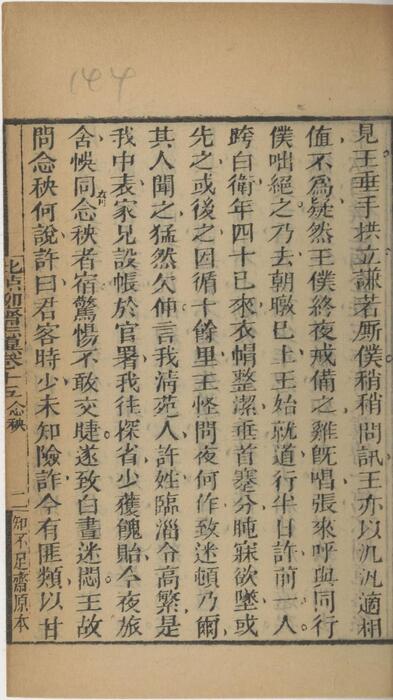 144
見王垂手拱立謙若厮僕稍稍問訊王亦以汎汎適相
值不爲疑然王僕終夜戒備之雞旣唱張來呼與同行
僕咄絕之乃去朝暾已上王始就道行半日許前一人
跨白衛年四十已來衣帽整潔垂首蹇分盹寐欲墜或
先之或後之因循十餘里王怪問夜何作致迷頓乃爾
其人聞之猛然欠伸言我淸苑人許姓臨淄令高檠是
我中表家兄設帳於官署我徃探省少獲餽貽今夜旅
舍悞同念秧者宿驚惕不敢交睫遂致白晝迷悶王故
問念秧何說許曰君客時少未知險詐今有匪類以甘
卷十五 念秧
二
知不足齋原本